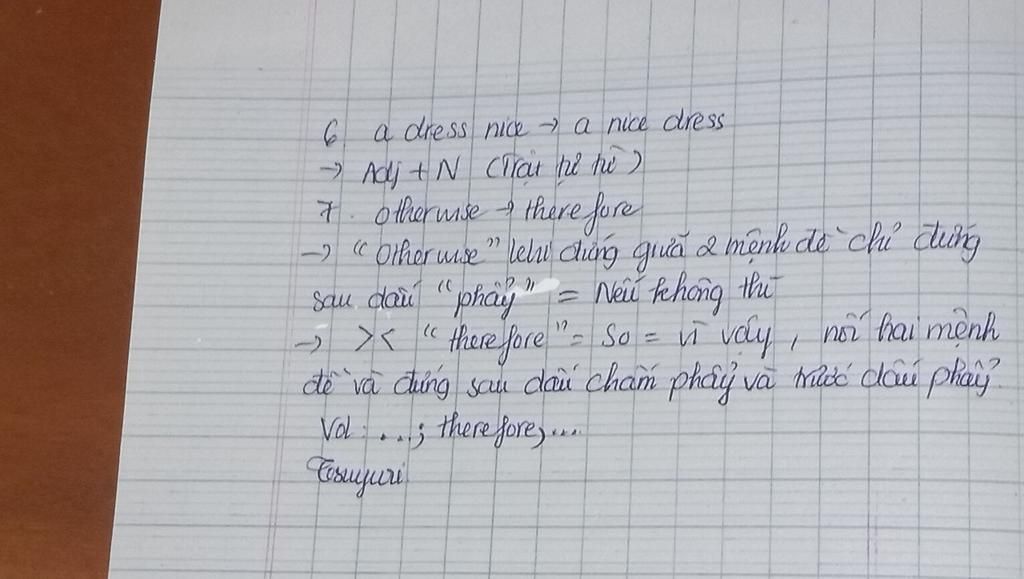 6. a dress nice → a nice dress
→ Adj + N (Trật tự từ)
7. Otherwise → therefore
→ "Otherwise" khi đứng giữa 2 mệnh đề chỉ đứng
sau dấu "phẩy" = Nếu không thì
→ >< "therefore" = So = vì vậy, nối hai mệnh
đề và đứng sau dấu chấm phẩy và trước dấu phẩy.
Vd: ...; therefore,...
Tosuyuri